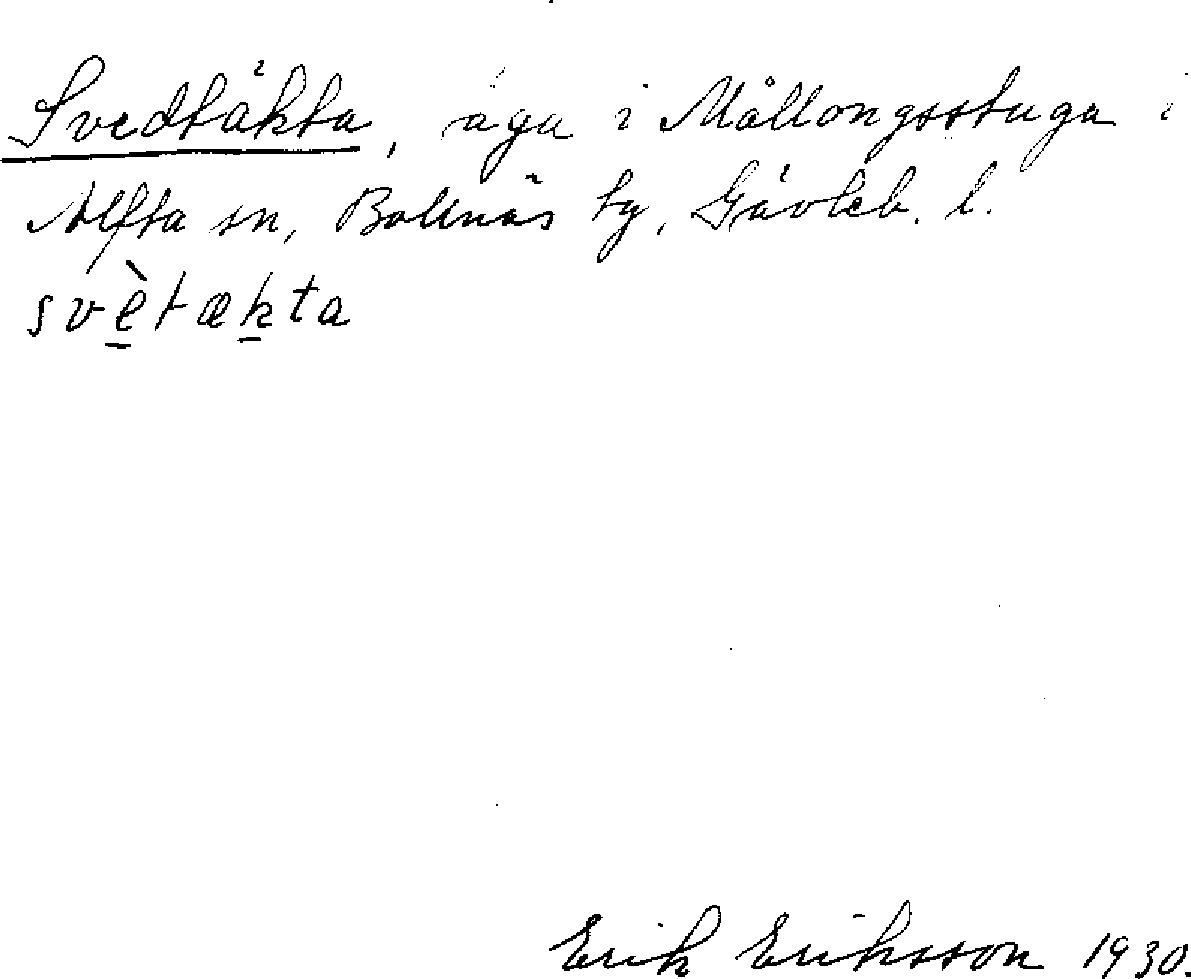 Svedtäkta, äga i Mållongsstuga i
Alfta sn, Bollnäs tg, Gävleb. l.
svè̱tæḵta
Erik Eriksson 1930.